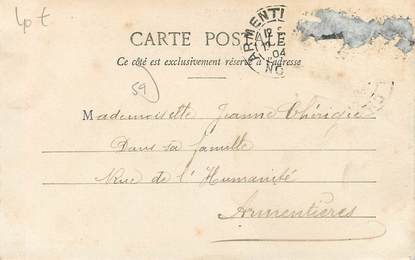 4p t
ARMENTI
12
04
NO
CARTE POSTALE
Ce côté est exclusivement réservé à l'adresse
59
Mademoiselle Jeanne
Dans sa famille
Rue de l'Humanité
Armentières